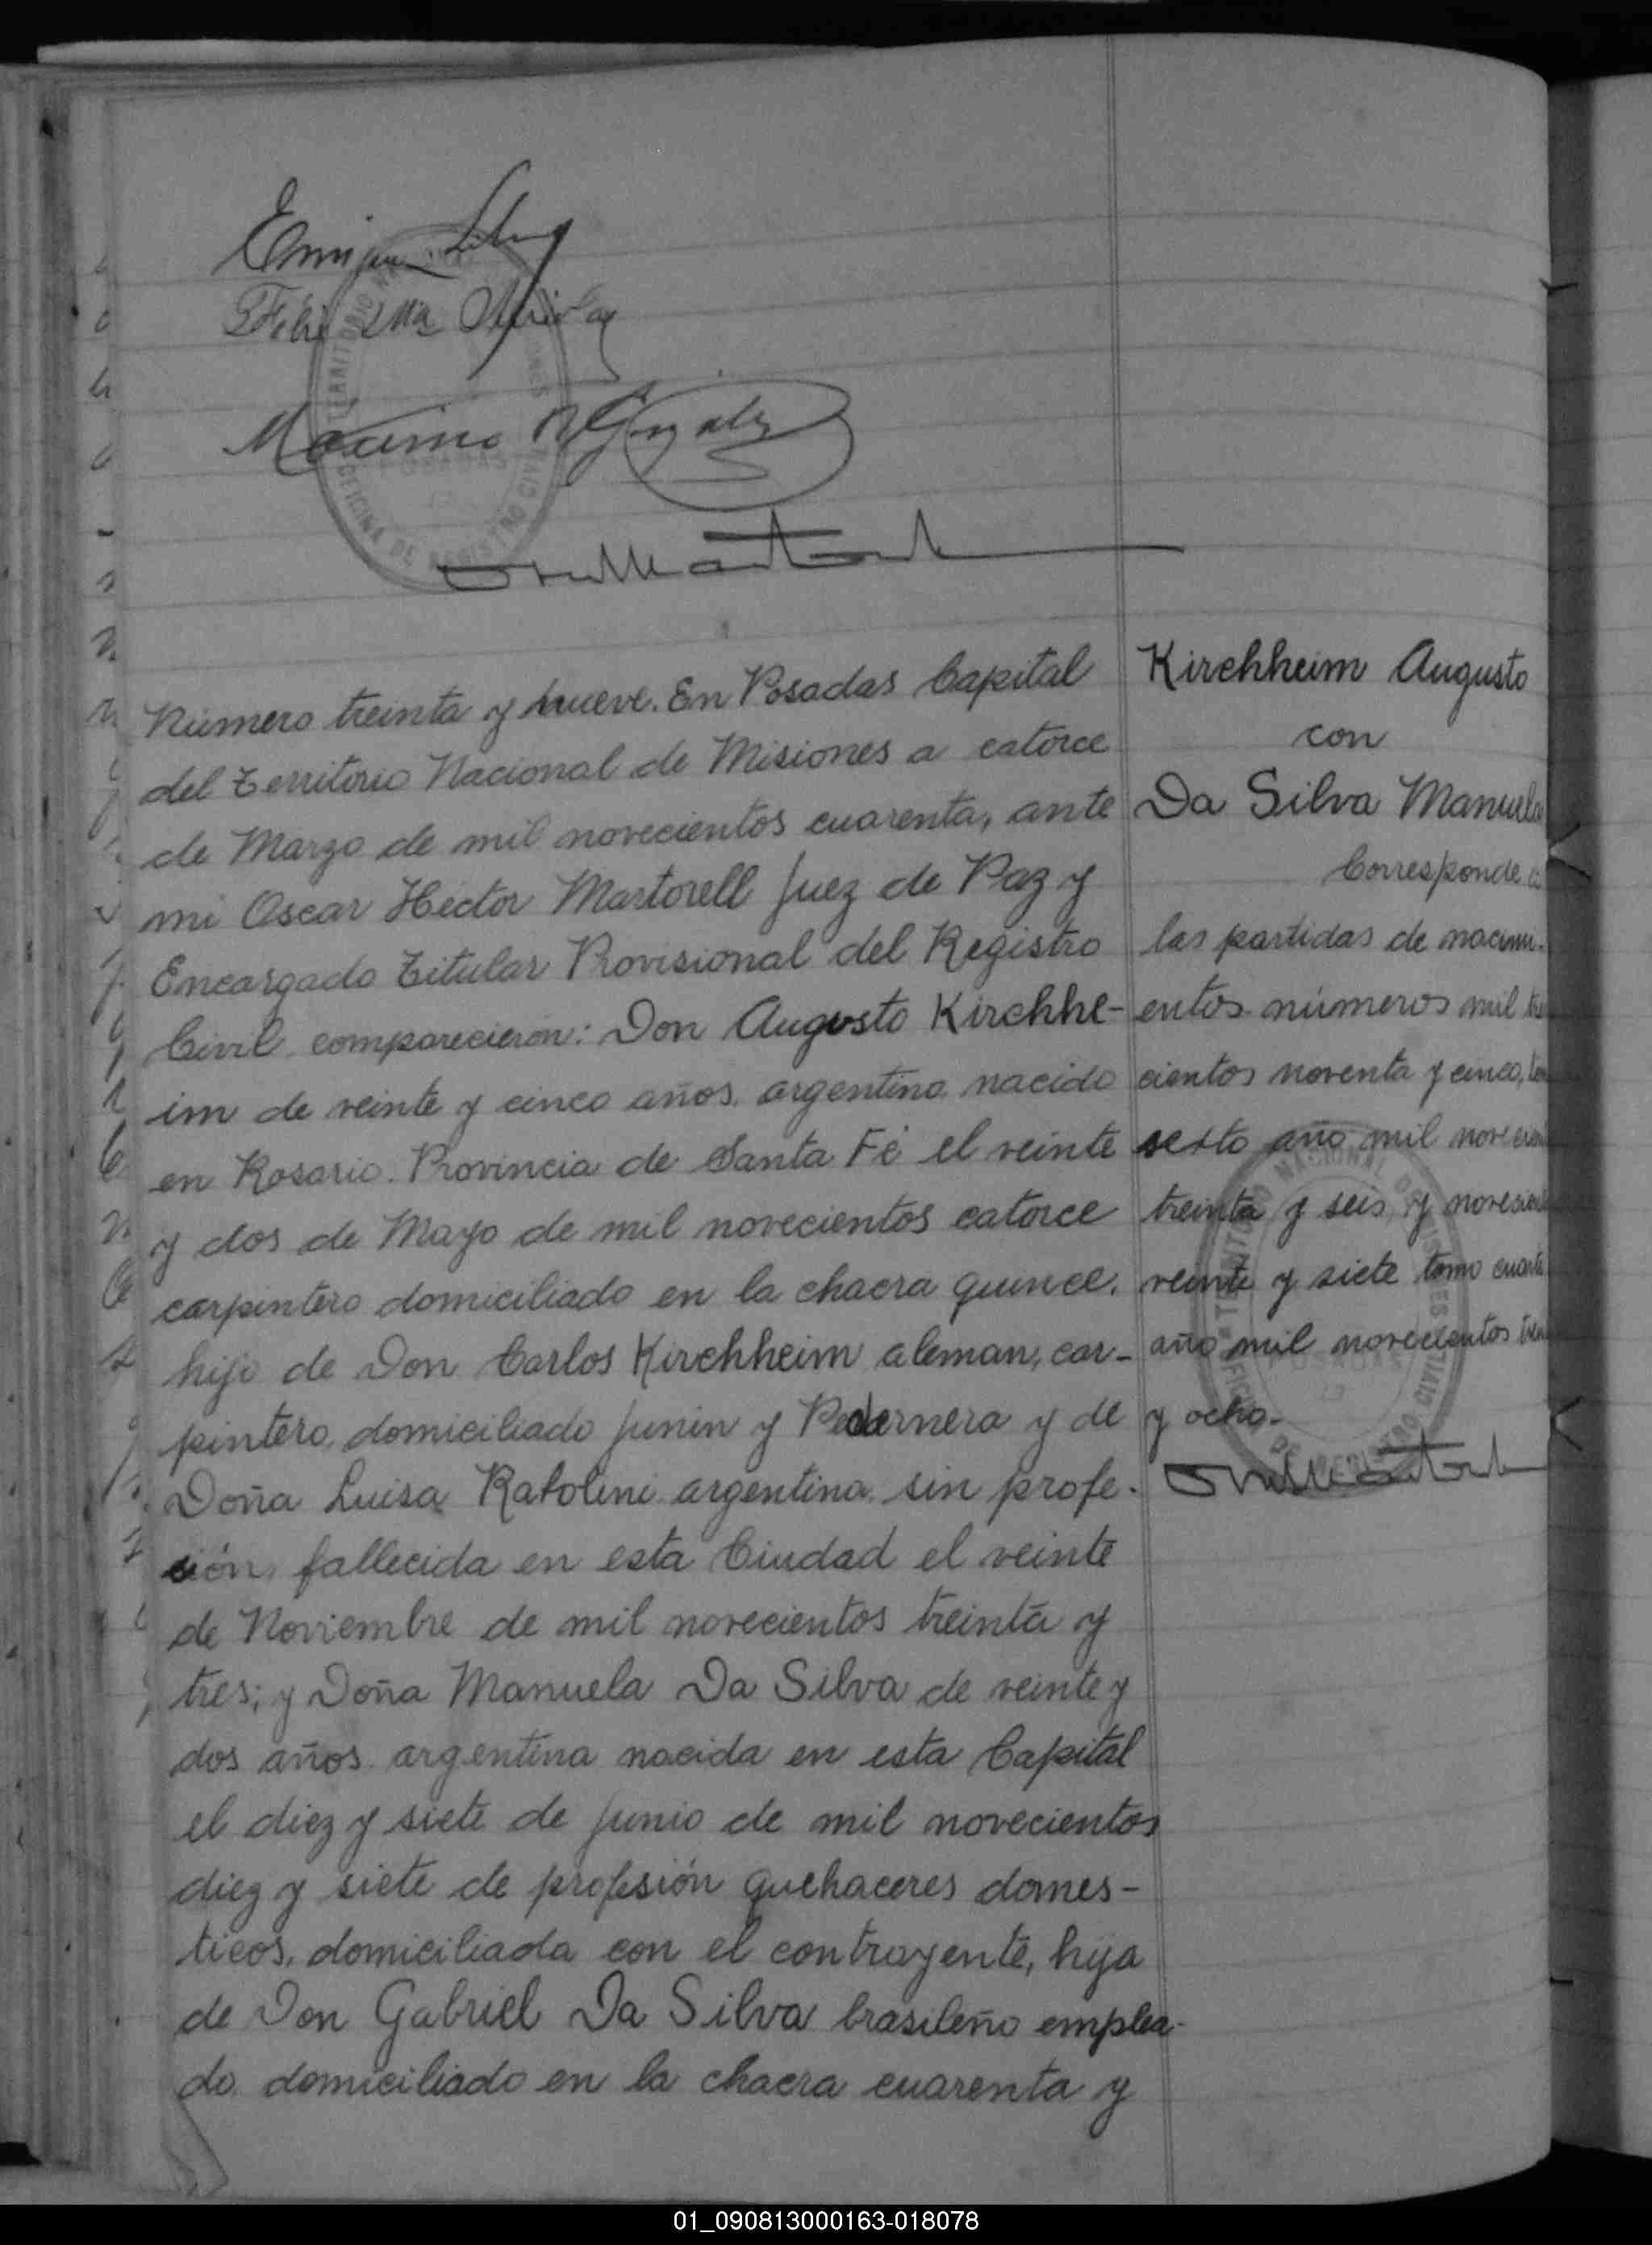 Maximo R Gonzalez
TERRITORIO NACIONAL DE MISIONES
POSADAS
OFICINA DE REGISTRO CIVIL
Número treinta y nueve. En Posadas Capital
del Territorio Nacional de Misiones a catorce
de Marzo de mil novecientos cuarenta, ante
mi Oscar Hector Martorell Juez de Paz y
Encargado Titular Provisional del Registro
Civil comparecieron: Don Augusto Kirchhe-
im de veinte y cinco años, argentino, nacido
en Rosario. Provincia de Santa Fé el veinte
y dos de Mayo de mil novecientos catorce
carpintero domiciliado en la chacra quince,
hijo de Don Carlos Kirchheim aleman, car-
pintero, domiciliado Junin y Pedernera y de
Doña Luisa Ratolini argentina, sin profe-
sión, fallecida en esta Ciudad el veinte
de Noviembre de mil novecientos treinta y
tres; y Doña Manuela Da Silva de veinte y
dos años, argentina nacida en esta Capital
el diez y siete de Junio de mil novecientos
diez y siete de profesión quehaceres domes-
ticos, domiciliada con el contrayente, hija
de Don Gabriel Da Silva brasileño emplea-
do domiciliado en la chacra cuarenta y
Kirchheim Augusto
con
Da Silva Manuela
Corresponde a
las partidas de nacimi-
entos números mil tre
cientos noventa y cinco,
sexto año mil novecien
treinta y seis, y novecien
veinte y siete tomo cuarto
año mil novecientos trein
y ocho.
TERRITORIO NACIONAL DE MISIONES
POSADAS
OFICINA DE REGISTRO CIVIL
01_090813000163-018078